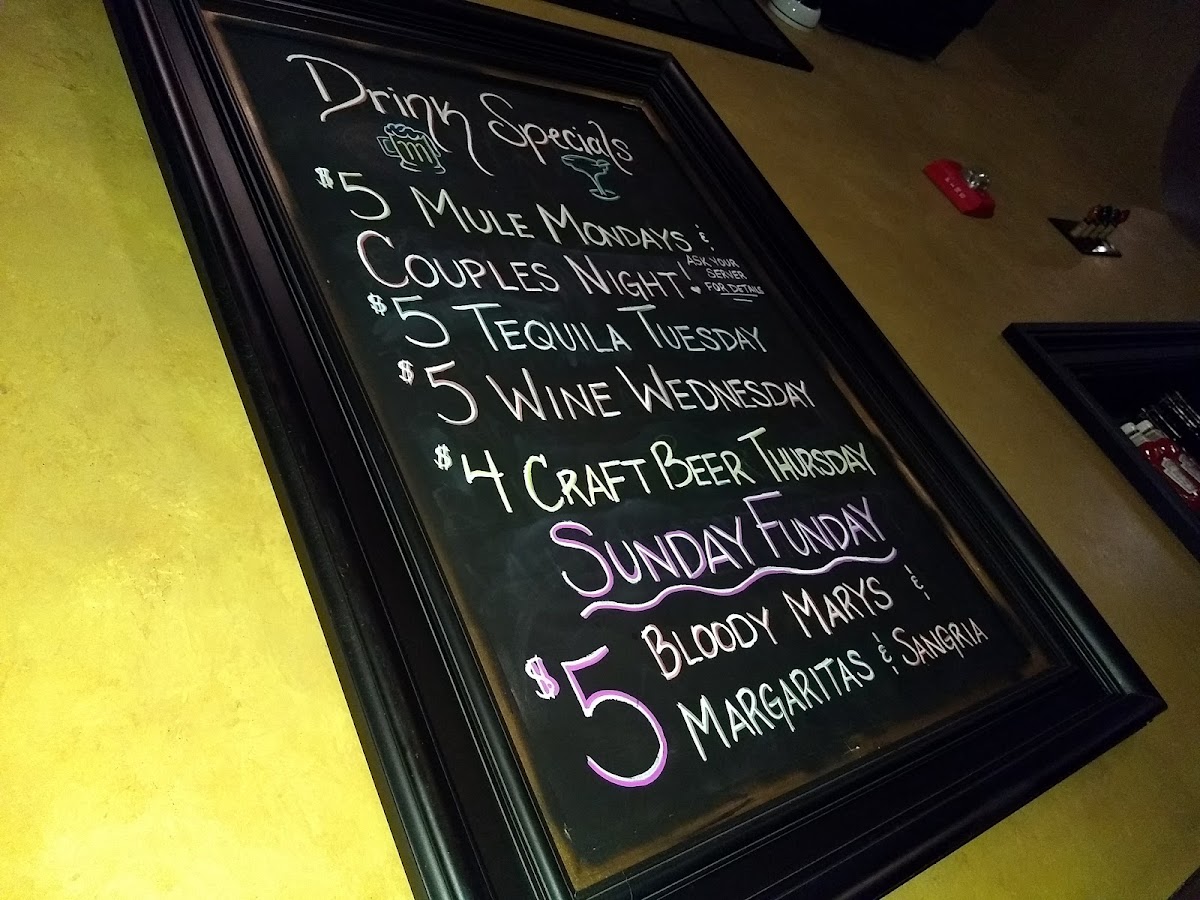 Drink Specials
m
$5 MULE MONDAYS &
COUPLES NIGHT! ASK YOUR
SERVER
FOR DETAILS
$5 TEQUILA TUESDAY
$5 WINE WEDNESDAY
$4 CRAFT BEER THURSDAY
SUNDAY FUNDAY
$5 BLOODY MARYS &
MARGARITAS & SANGRIA